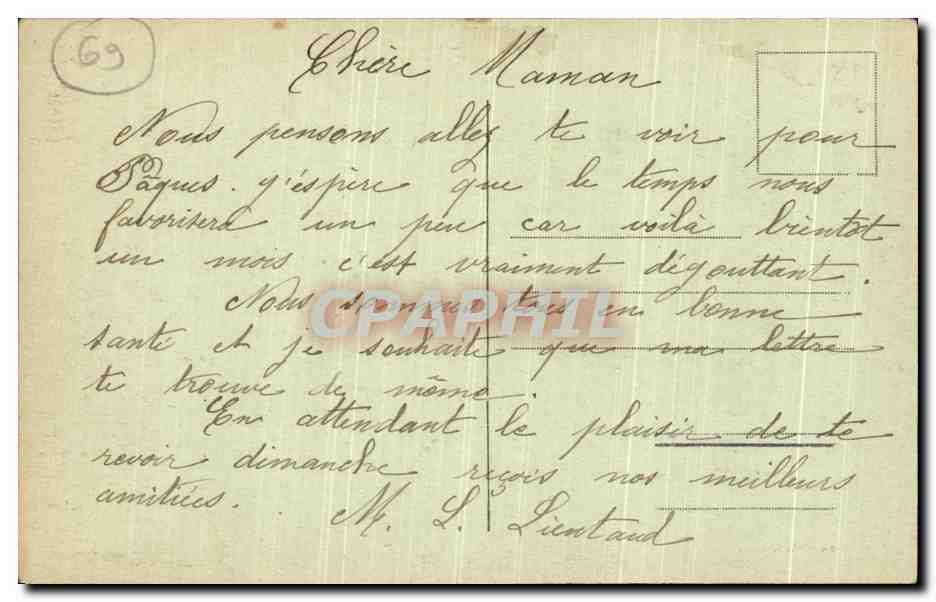 69
Chère Maman
Nous pensons aller te voir pour
Pâques. J'éspère que le temps nous
favorisera un peu car voilà bientot
un mois c'est vraiment dégouttant.
Nous sommes tous en bonne
santé et je souhaite que ma lettre
te trouve de même.
En attendant le plaisir de te
revoir dimanche reçois nos meilleurs
amitiées.
M. L. Lientaud
CPAPHIL